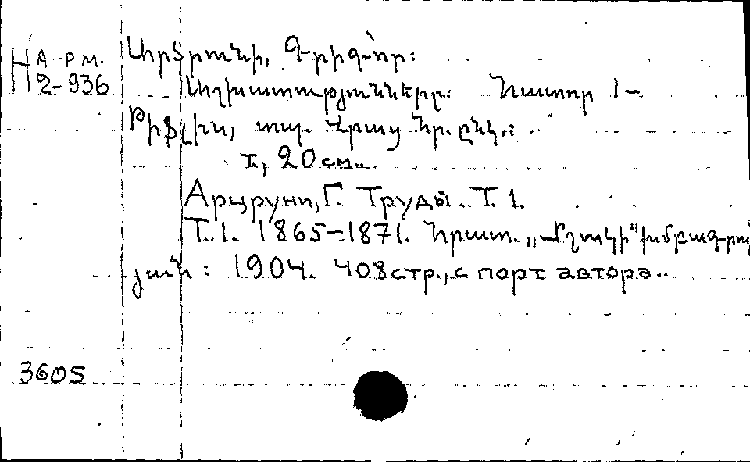 Арм.
Н 2-936
Արծրունի, Գրիգոր:
Աշխատություններ: Հատոր 1-
Թիֆլիս, տպ. Վրաց հր. ընկ.:
т., 20 см.
Арцруни, Г. Труды. Т. 1.
Т. 1. 1865-1871. Հրատ. „Մշակի" խմբագրու
յան: 1904. 408 стр., с порт автора.
3605